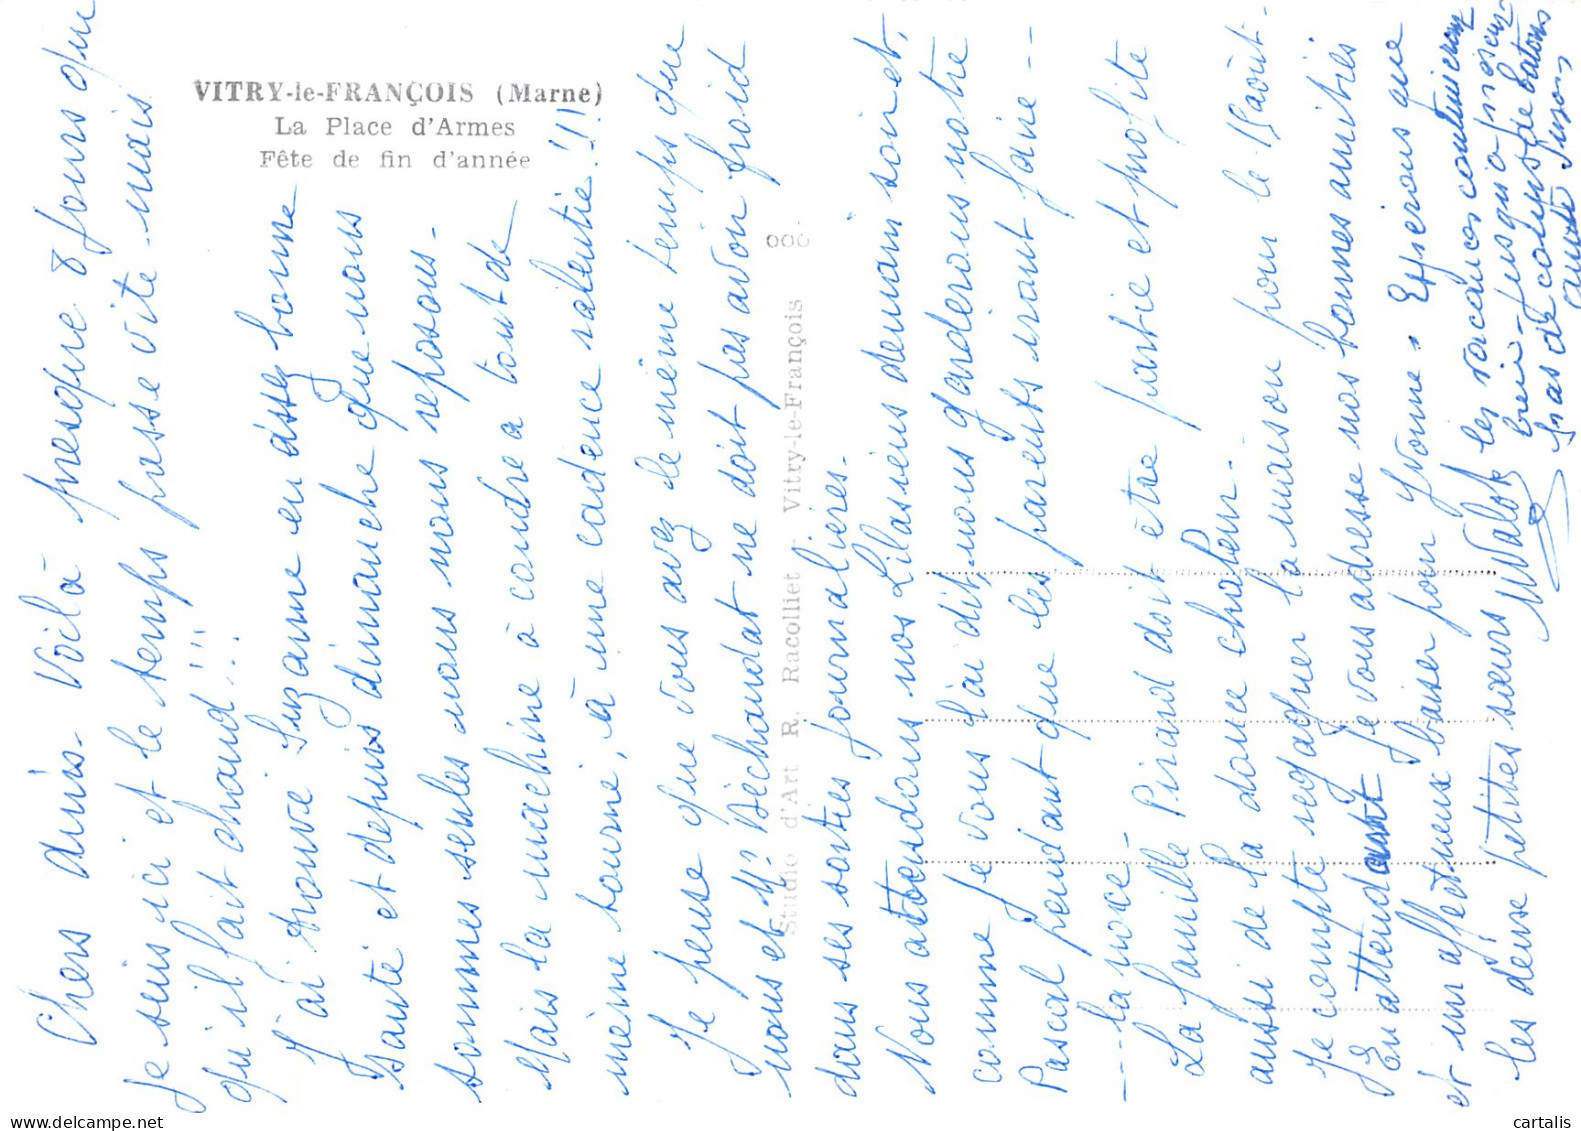 VITRY-le-FRANÇOIS (Marne)
La Place d'Armes
Fête de fin d'année
000
Studio d'Art R. Racolliet - Vitry-le-François
Chers amis. Voilà presque 8 jours que
je suis ici et le temps passe vite. mais
qu'il fait chaud !!!
J'ai trouvé Suzanne en assez bonne
santé et depuis dimanche que nous
sommes seules nous nous reposons -
Mais la machine à coudre a tout de
même tourné, à une cadence ralentie !!!
Je pense que vous avez le même temps que
nous et Mr Béchaudat ne doit pas avoir froid
dans ses sorties journalières.
Nous attendons nos Lilasiens demain soir et,
comme je vous l'ai dit, nous garderons notre
Pascal pendant que les parents iront faire --
---- la noce -
La famille Pirard doit être partie et profite
aussi de la douce chaleur -
Je compte regagner la maison pour le 15 août -
En attendant je vous adresse nos bonnes amitiés
et un affectueux baiser pour Yvonne. Espérons que
les deux petites sœurs
les vacances continueront
bien - jusqu'à présent
pas de coups de batons
MWalot
cartalis.com